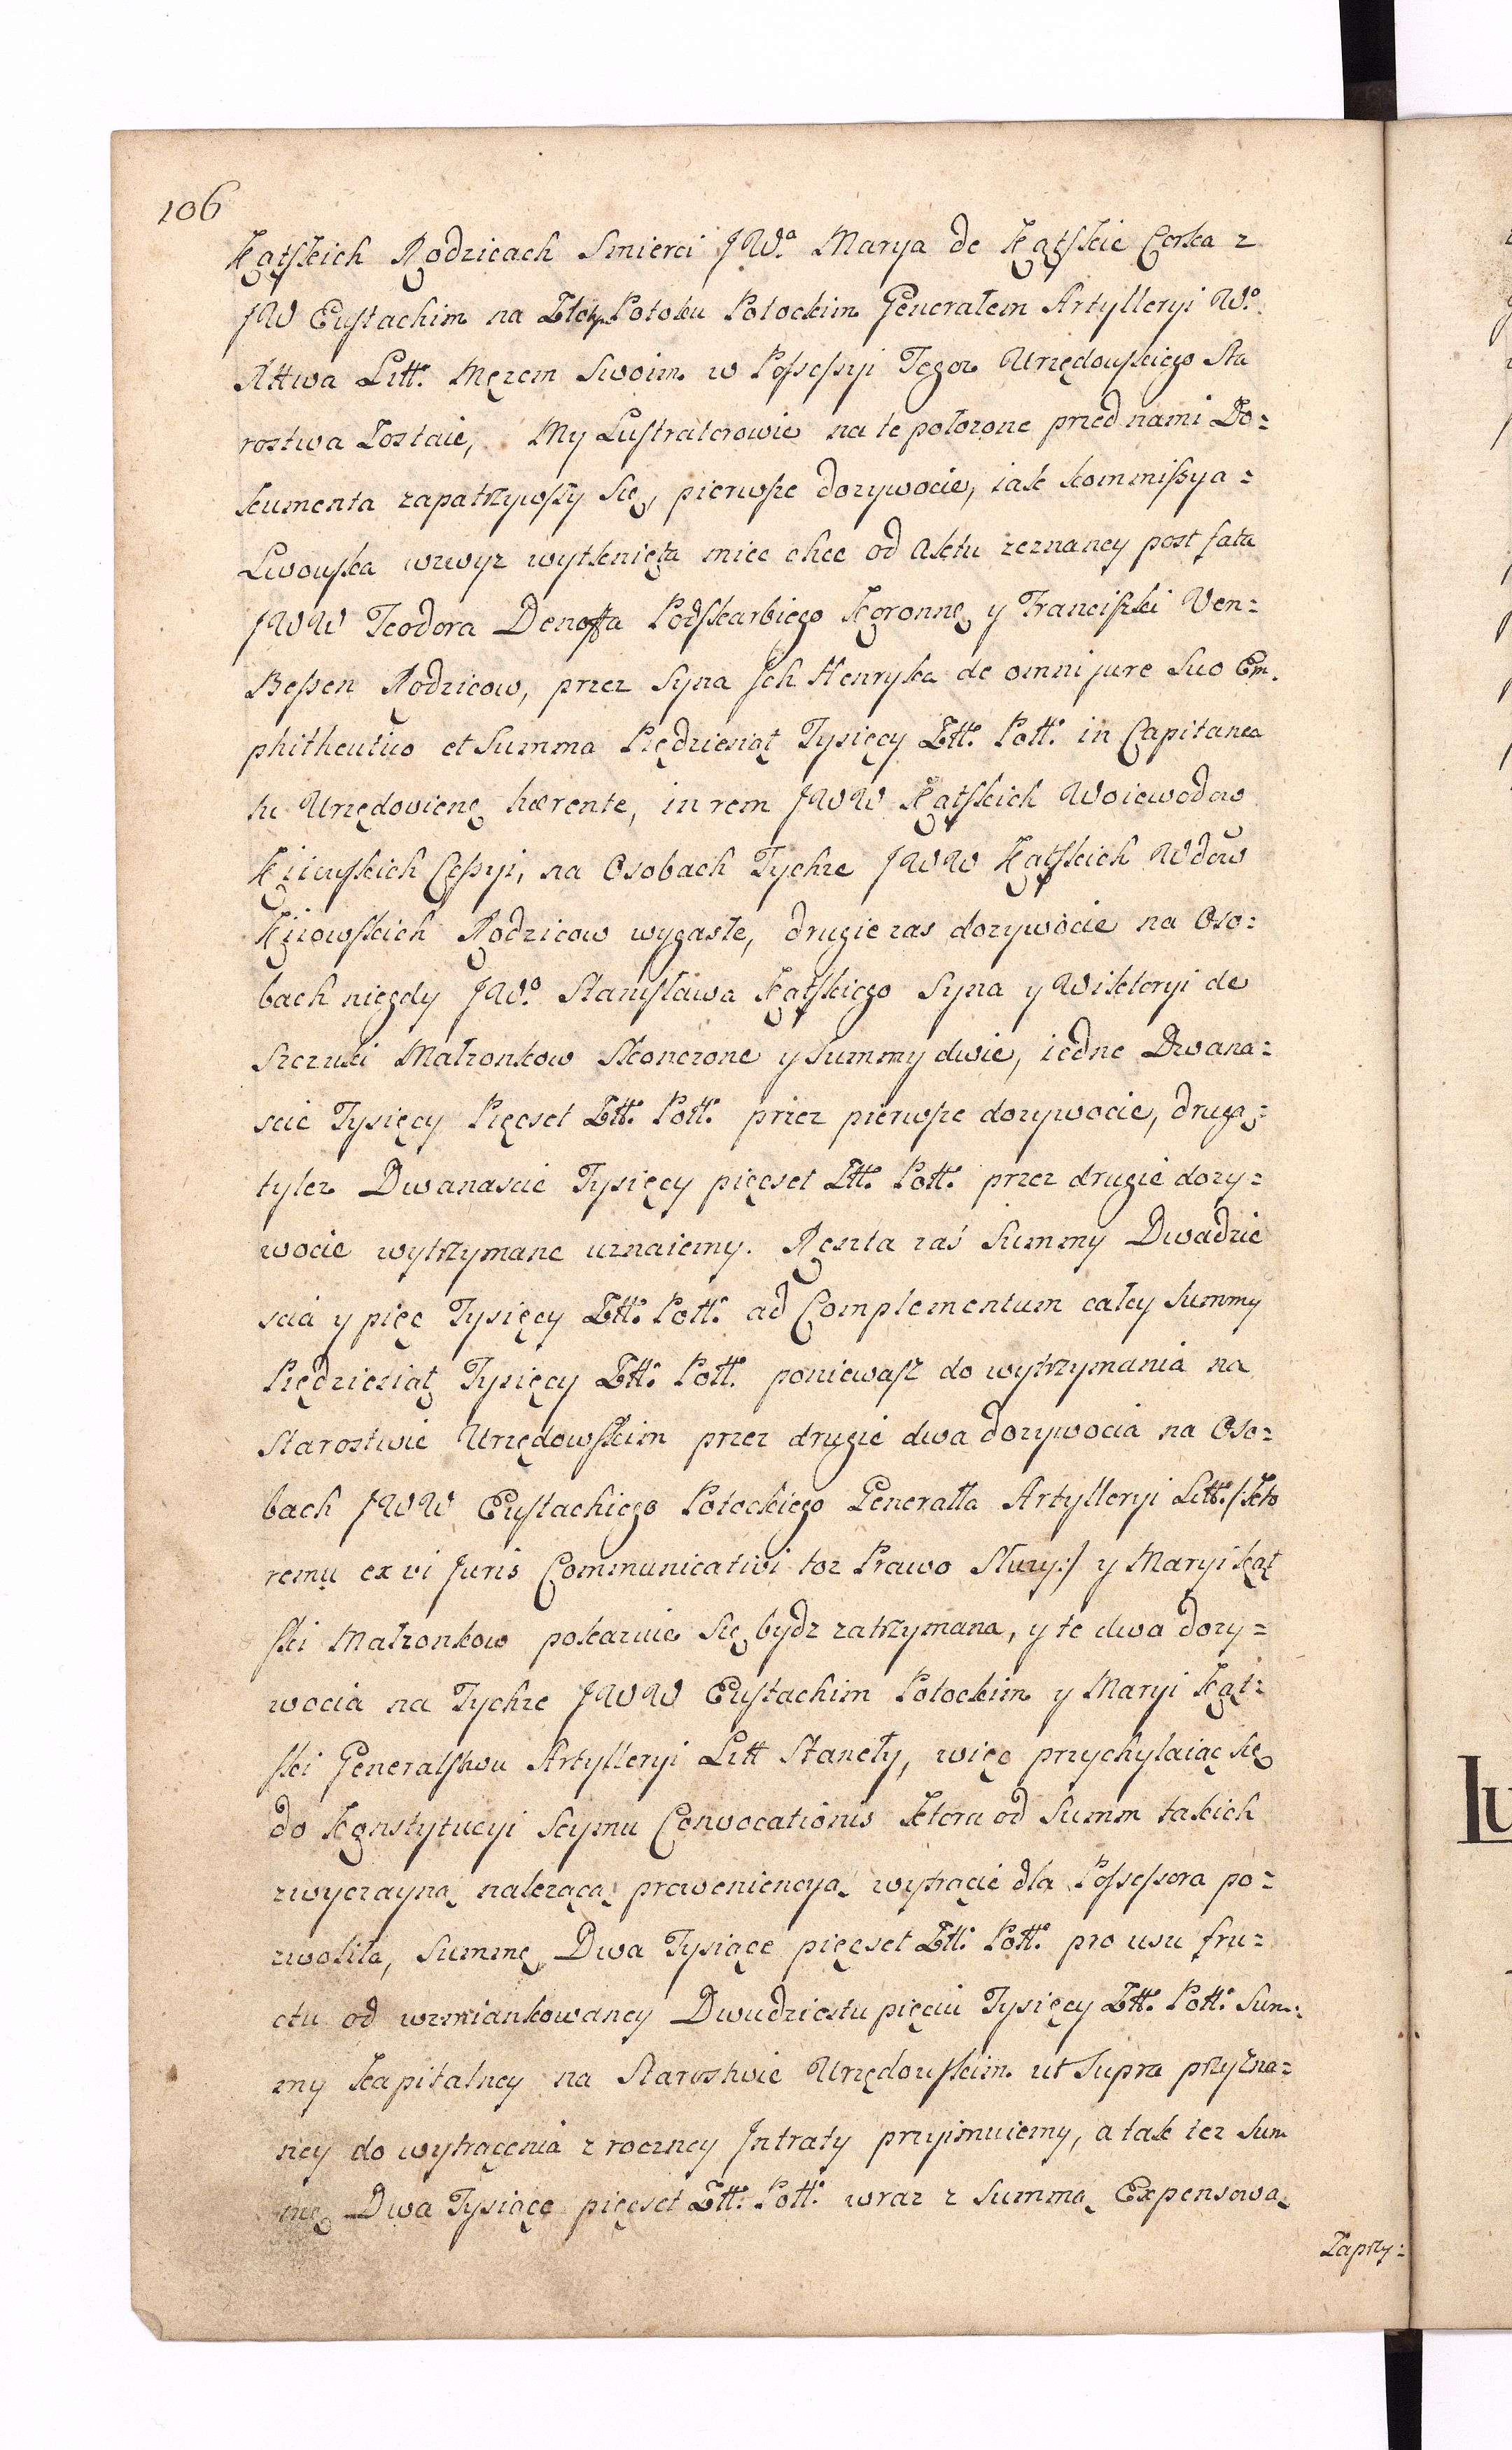 106
Kątskich Rodzicach Smierci JWa. Marya de Kątskie Corka z
JW Eustachim na Złotym Potoku Potockim Generałem Artylleryi Wo.
Xttwa Litt: Męzem Swoim w Possessyi Tegoz Urzędowskiego Sta
rostwa Zostaie, My Lustratorowie na te połozone przed nami Do=
kumenta zapatrzywszy się, pierwsze dozywocie, iak kommissya=
Lwowska wzwyz wytknięta miec chce od Aktu zeznaney post fata
JWW Teodora Denoffa Podskarbiego Koronnę y Franciszki Ven=
Bessen Rodzicow, przez Syna Jch Henryka de omni jure Suo Em.
phitheutico et Summa Piędziesiąt Tysięcy Złł: Poll: in Capitanea
tu Urzędoviene hærente, in rem JWW Kątskich Woiewodow
Kiiewskich Cessyi, na Osobach Tychze JWW Kątskich Wdow
Kiiowskich Rodzicow wygasłe, drugie zas dozywocie na Oso=
bach niegdy JWo. Stanisława Kątskiego Syna y Wiktoryi de
Szczuki Małzonkow Skonczone y Summy dwie, iedne Dwana=
scie Tysięcy Pięcset Złł: Poll: przez pierwsze dozywocie, drugą=
tylez Dwanascie Tysięcy pięcset Złł: Poll: przez drugie dozy=
wocie wytrzymane uznaiemy. Reszta zaś Summy Dwadzie
scia y pięc Tysięcy Złł: Poll: ad Complementum całey Summy
Piędziesiąt Tysięcy Złł: Poll: poniewasz do wytrzymania na
Starostwie Urzędowskim przez drugie dwa dozywocia na Oso=
bach JWW Eustachiego Potockiego Generałła Artylleryi Litt:/Kto
remu ex vi Juris Communicativi toz Prawo Słuzy:/ y Maryi Kąt
ski Małzonkow pokazuie się bydz zatrzymana, y te dwa dozy=
wocia na Tychze JWW Eustachim Potockim y Maryi Kąt=
ski Generalstwu Artylleryi Litt Stanęły, więc przychylaiąc się
do Konstytucyi Seymu Convocationis Ktora od Summ takich
zwyczayną nalezącą proweniencyą wytrącic dla Possessora po=
zwoliła, Summę Dwa Tysiące pięcset Złł: Poll: pro usu fru=
ctu od wzmiankowaney Dwudziestu pięciu Tysięcy Złł: Poll: Sum=
my kapitalney na Starostwie Urzędowskim ut Supra przyzna=
ney do wytrącenia z roczney Jntraty przyimuiemy, a tak tez Sum
mę Dwa Tysiące pięcset Złł: Poll: wraz z Summą Expensową
Zaprzy=
Lu